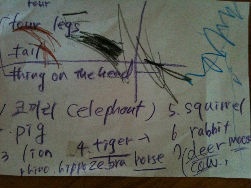 four
four legs
tail
thing on the head
1 코끼리 (elephant) 5. squirrel
. pig 4. tiger → 6 rabbit
3 lion 7 deer moose
rhino hippo zebra horse cow